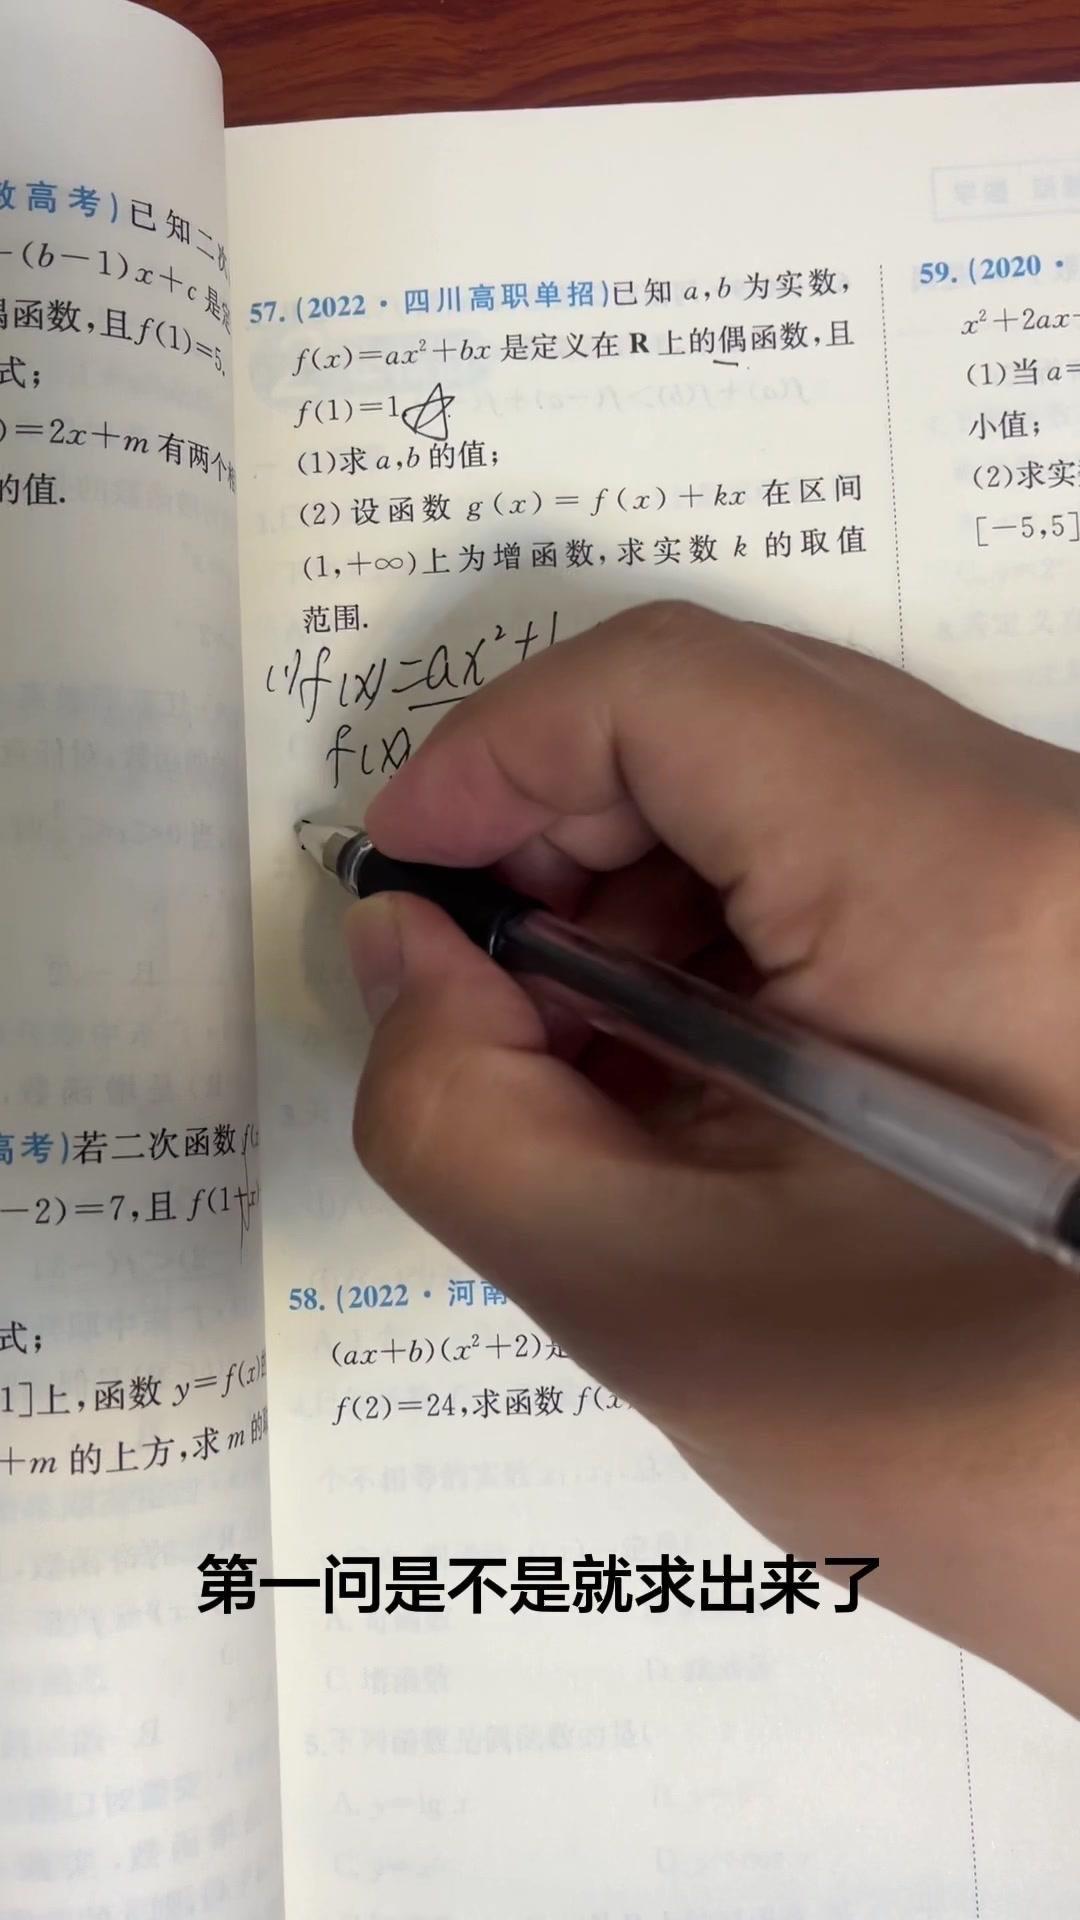 数高考)已知二次
-(b-1)x+c是定
偶函数,且f(1)=5.
式;
)=2x+m有两个相
的值.
高考)若二次函数
-2)=7,且f(1+x)
式;
1]上,函数 y=f(x)的
+m 的上方,求m的取
57.(2022·四川高职单招)已知 a,b 为实数,
f(x)=ax²+bx 是定义在 R 上的偶函数,且
f(1)=1
(1)求 a,b 的值;
(2) 设函数 g(x)= f(x)+kx 在区间
(1,+∞)上为增函数,求实数 k 的取值
范围.
(1)f(x)=ax²+
f(x)
58.(2022·河南
(ax+b)(x²+2)是
f(2)=24,求函数 f(x)
59.(2020·
x²+2ax-
(1)当a=
小值;
(2)求实
[-5,5]
第一问是不是就求出来了